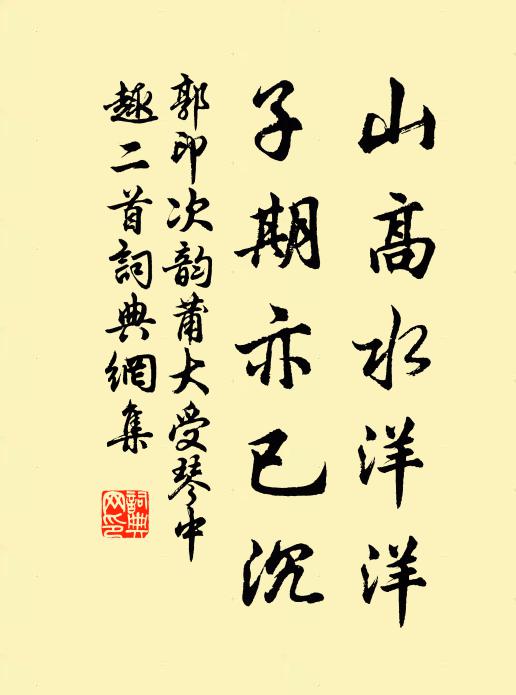 山高水洋洋
子期亦已沉
郭印次韵蒲大受琴中
趣二首詞典網集
詞典网印